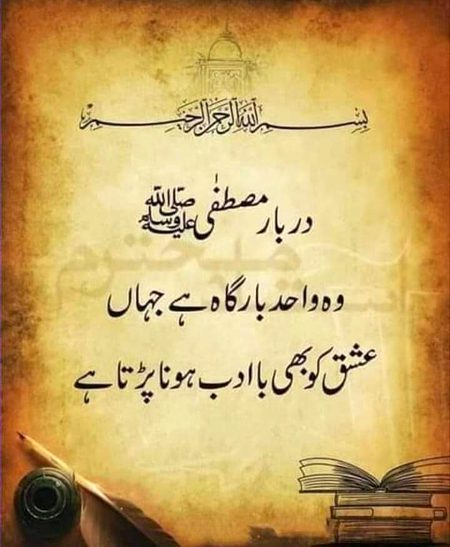 بسم الله الرحمن الرحيم
دربار مصطفیٰ ﷺ
وہ واحد بارگاہ ہے جہاں
عشق کو بھی با ادب ہونا پڑتا ہے